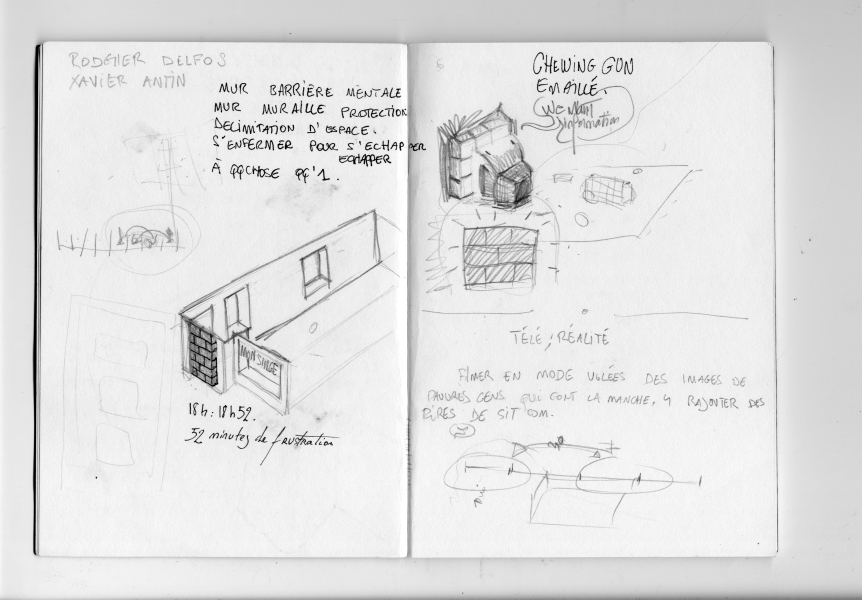 XAVIER ANTIN
MUR BARRIÈRE MENTALE
MUR MURAILLE PROTECTION
DELIMITATION D'ESPACE.
S'ENFERMER POUR S'ECHAPPER
ECHAPPER
À QQCHOSE QQ'1.
MON SINGE
18h : 18h52.
52 minutes de frustration
CHEWING GON
EMAILLÉ.
We Want
information
TÉLÉ, RÉALITÉ
FIMER EN MODE VOLÉES DES IMAGES DE
PAUVRES GENS QUI FONT LA MANCHE, Y RAJOUTER DES
RIRES DE SIT COM.